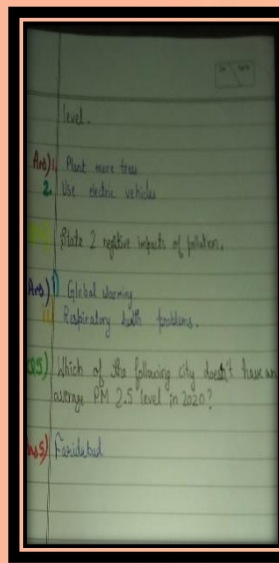 level.
Ans) 1. Plant more trees
2. Use electric vehicles
State 2 negative impacts of pollution.
Ans) i) Global warming
ii) Respiratory health problems.
Q5) Which of the following city doesn't have an
average PM 2.5 level in 2020?
Ans5) Faridabad